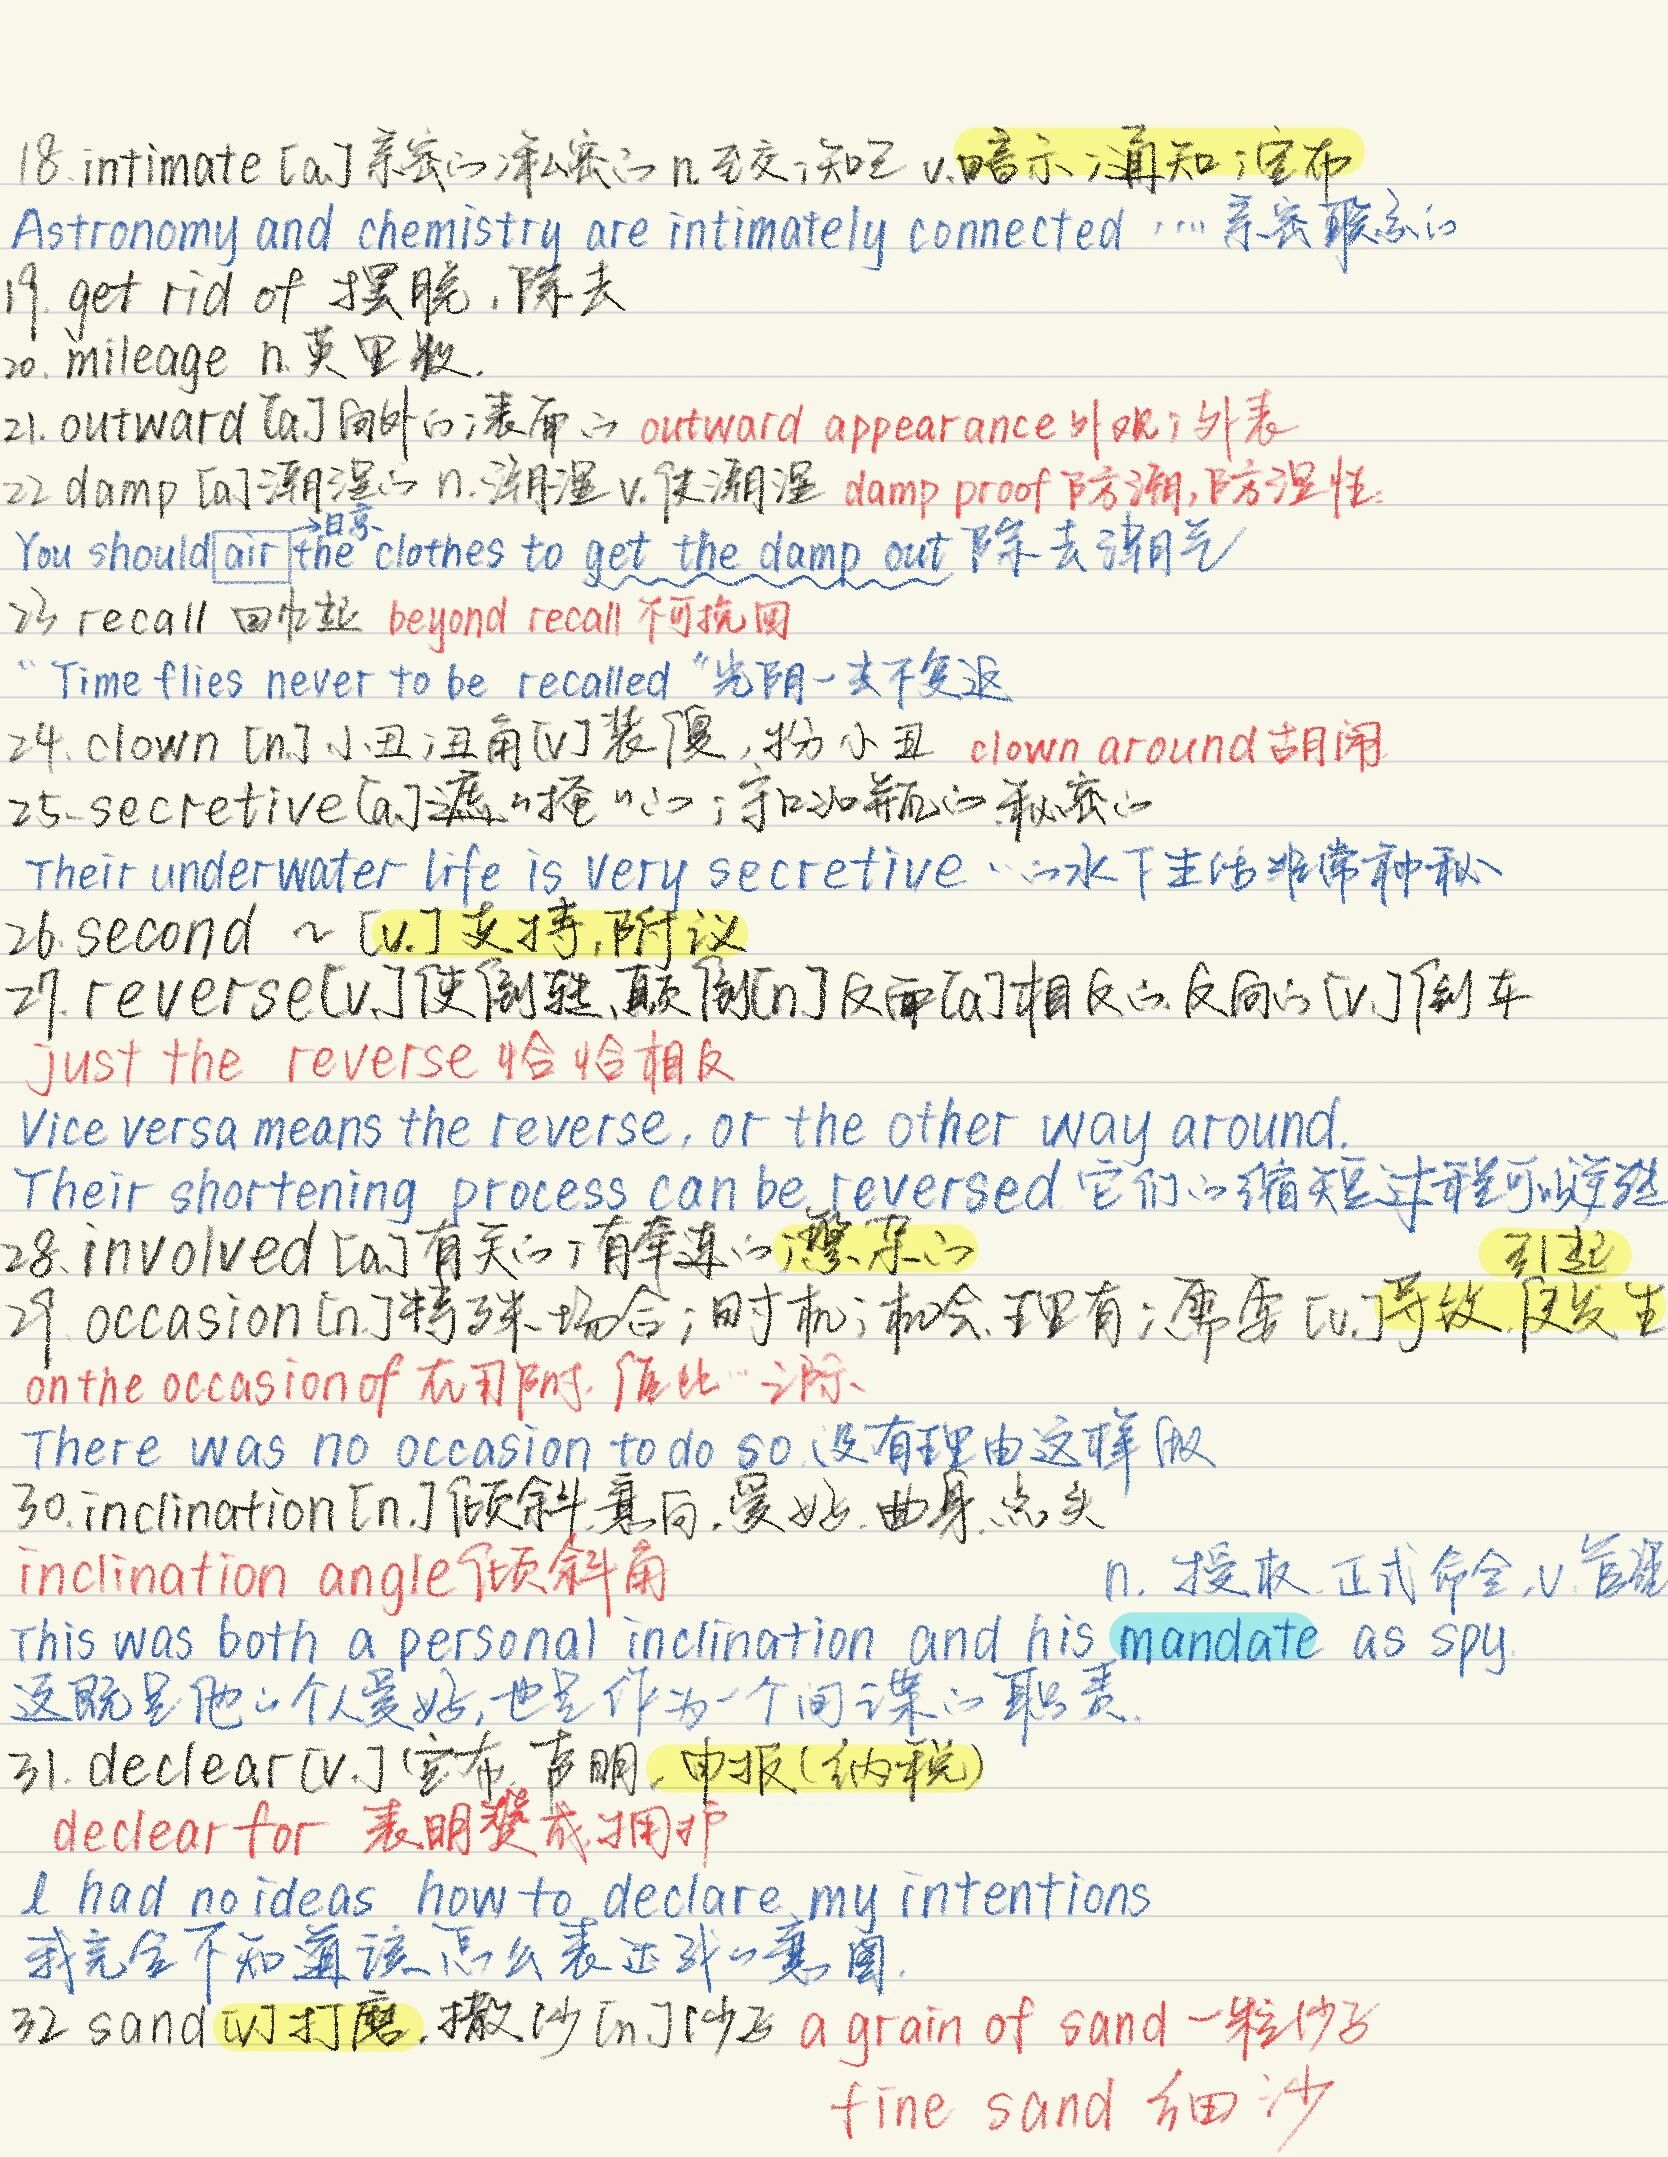 18. intimate [a.] 亲密的;私密的 n.至交;知己 v.暗示;通知;宣布
Astronomy and chemistry are intimately connected ····亲密联系的
19. get rid of 摆脱,除去
20. mileage n.英里数.
21. outward [a.]向外的;表面的 outward appearance 外观;外表
22 damp [a]潮湿的 n.潮湿 v.使潮湿 damp proof 防潮,防湿性.
→晾
You should air the clothes to get the damp out 除去潮气
23 recall 回忆起 beyond recall 不可挽回
“Time flies never to be recalled”光阴一去不复返
24. clown [n.]小丑;丑角[v.]装傻,扮小丑 clown around 胡闹
25. secretive [a.]遮〃掩〃的;守口如瓶的.秘密的
Their underwater life is very secretive ··的水下生活非常神秘
26. second ~ [v.]支持,附议
27. reverse[v.]使倒转、颠倒[n.]反面[a]相反的.反向的[v.]倒车
just the reverse 恰恰相反
Vice versa means the reverse, or the other way around.
Their shortening process can be reversed 它们的缩短过程可以逆转
28. involved [a.]有关的;有牵连的;繁杂的
引起
29. occasion[n.]特殊场合;时机;机会.理有;席委[v.]导致.使发生
on the occasion of 在那时.值此···之际、
There was no occasion to do so 没有理由这样做
30. inclination [n.]倾斜.意向.爱好.曲身.点头
inclination angle 倾斜角
n. 授权.正式命令,v.管理
This was both a personal inclination and his mandate as spy.
这既是他的个人爱好,也是作为一个间谍的职责.
31. declear[v.]宣布,声明,申报(纳税)
declear for 表明赞成.拥护
I had no ideas how to declare my intentions
我完全不知道该怎么表达我的意图.
32 sand [v.]打磨.撒沙[n.]沙子 a grain of sand 一粒沙子
fine sand 细沙